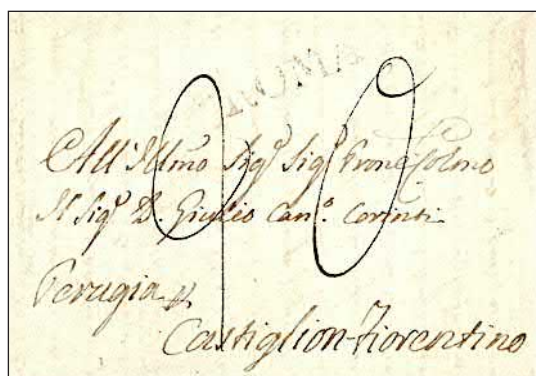 ROMA
90
All' Illmo Sigr Sigr Prone Colmo
Il Sigr D. Giulio Cano. Corinti
Perugia p.
Castiglion-Fiorentino